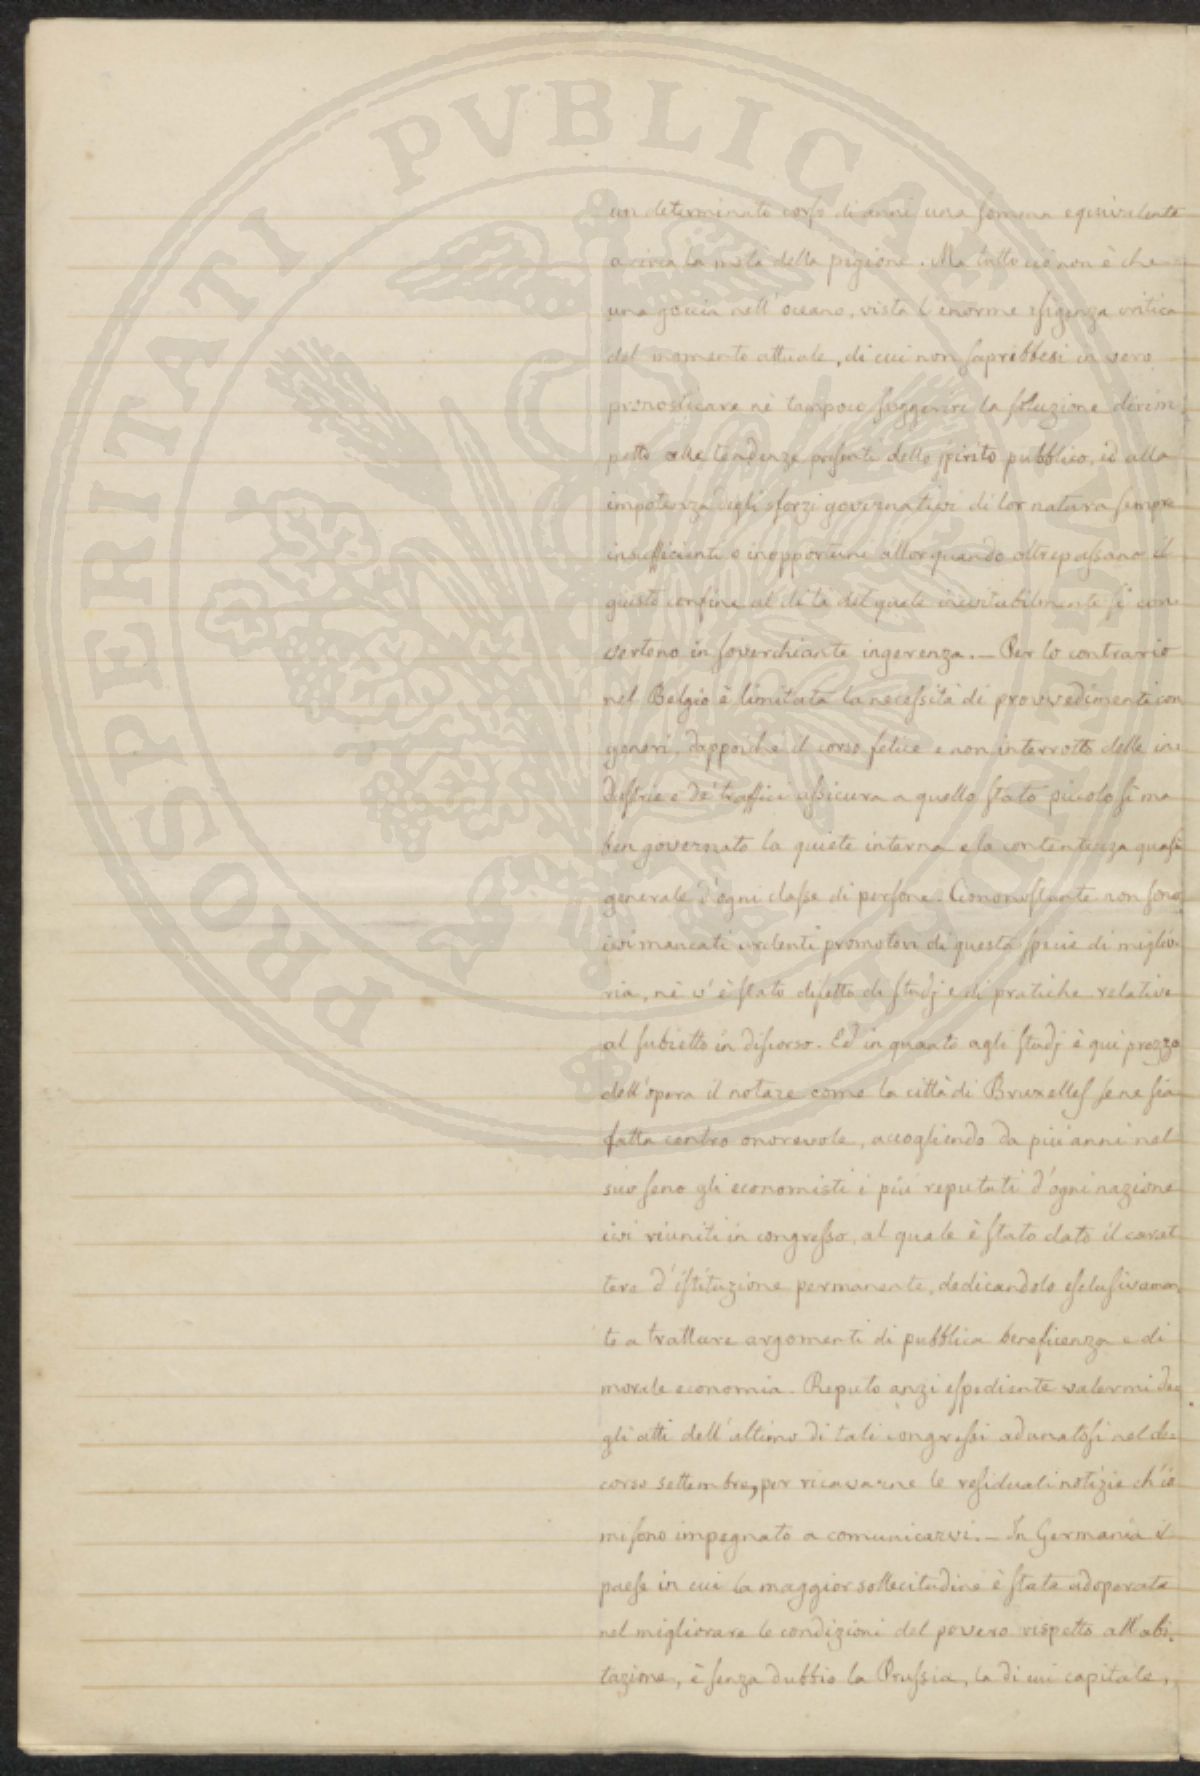 PROSPERITATI PVBLICAE AVGENDAE
un determinato corso di anni una somma equivalente
a circa la metà della pigione. Ma tutto ciò non è che
una goccia nell'oceano, vista l'enorme esigenza critica
del momento attuale, di cui non saprebbesi in vero
pronosticare nè tampoco suggerire la soluzione dirim
petto alle tendenze presenti dello spirito pubblico, ed alla
impotenza degli sforzi governativi di lor natura sempre
insufficienti o inopportuni allorquando oltrepassano il
giusto confine al di là del quale inevitabilmente si con
vertono in soverchiante ingerenza. — Per lo contrario
nel Belgio è limitata la necessità di provvedimenti con
generi, dappoichè il corso felice e non interrotto delle in
dustrie e de' traffici assicura a quello stato piccolo sì ma
ben governato la quiete interna e la contentezza quasi
generale d'ogni classe di persone. Ciononostante non sono
ivi mancati ardenti promotori di questa specie di miglio
ria, nè v'è stato difetto di studj e di pratiche relative
al subietto in discorso. Ed in quanto agli studj è qui prezzo
dell'opera il notare come la città di Bruxelles se ne sia
fatta centro onorevole, accogliendo da più anni nel
suo seno gli economisti i più reputati d'ogni nazione
ivi riuniti in congresso, al quale è stato dato il carat
tere d'istituzione permanente, dedicandolo esclusivamen
te a trattare argomenti di pubblica beneficenza e di
morale economia. Reputo anzi espediente valermi de
gli atti dell'ultimo di tali congressi adunatosi nel de
corso settembre, per ricavarne le residuali notizie ch'io
mi sono impegnato a comunicarvi. — In Germania il
paese in cui la maggior sollecitudine è stata adoperata
nel migliorare le condizioni del povero rispetto all'abi
tazione, è senza dubbio la Prussia, la di cui capitale,